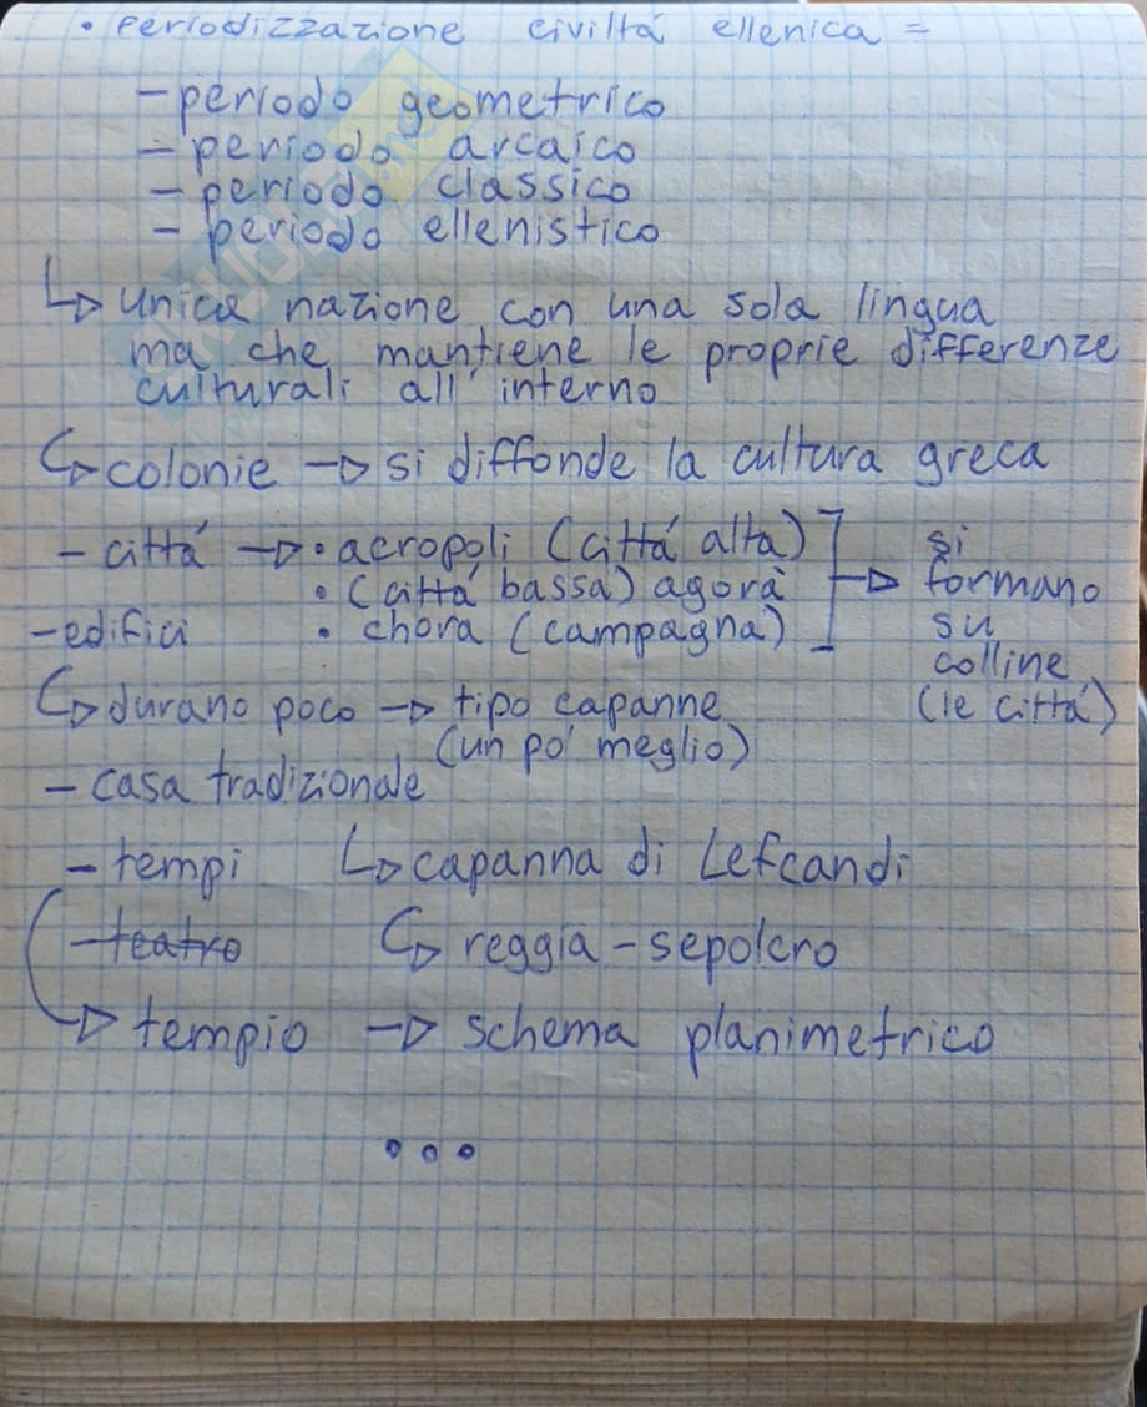 • Periodizzazione civiltá ellenica =
- periodo geometrico
- periodo arcaico
- periodo classico
- periodo ellenistico
↳ unica nazione con una sola lingua
ma che mantiene le proprie differenze
culturali all'interno
↳ colonie → si diffonde la cultura greca
- cittá → • acropoli (cittá alta)
• (cittá bassa) agorà
- edifici • chora (campagna)
→ si
formano
su
colline
(le cittá)
↳ durano poco → tipo capanne
(un po' meglio)
- casa tradizionale
- tempi ↳ capanna di Lefcandi
- teatro ↳ reggia - sepolcro
→ tempio → schema planimetrico
• • •